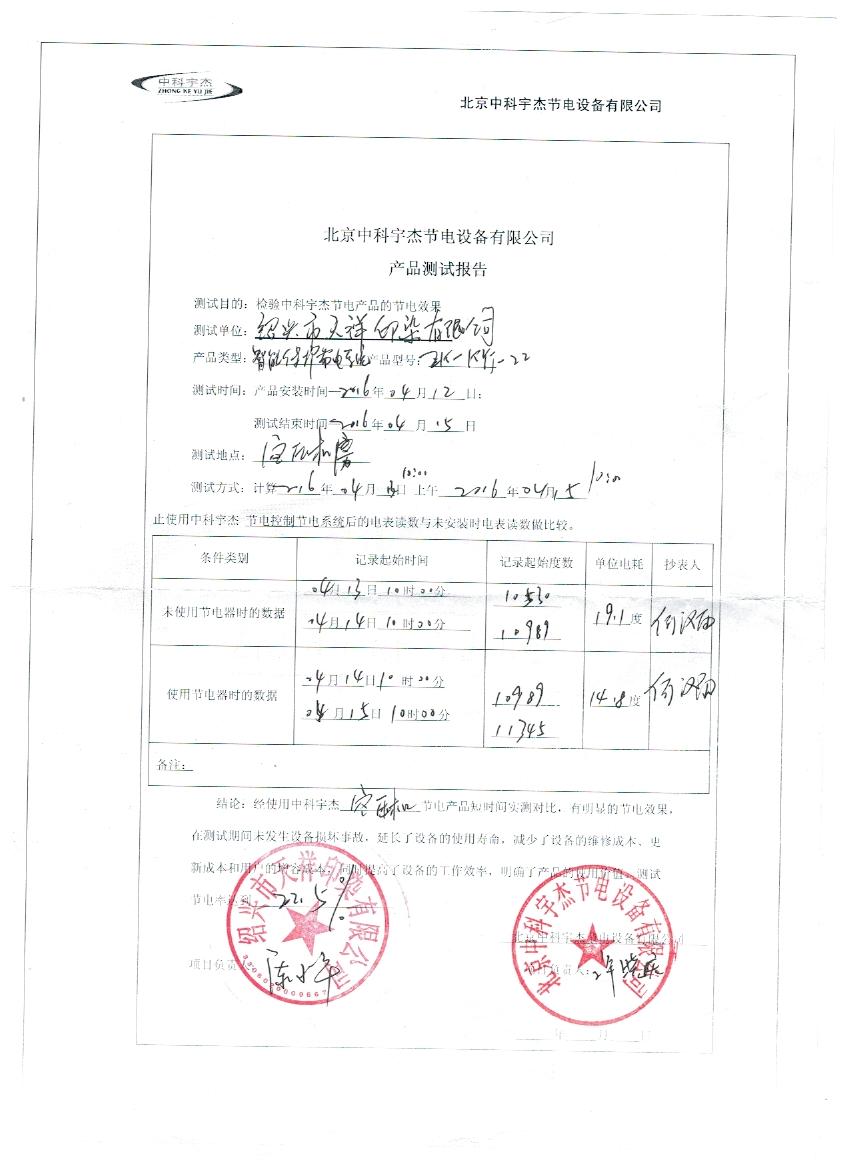 中科宇杰
ZHONG KE YU JIE
北京中科宇杰节电设备有限公司
北京中科宇杰节电设备有限公司
产品测试报告
测试目的：检验中科宇杰节电产品的节电效果
测试单位：绍兴市天祥印染有限公司
产品类型：智能保护节电系统产品型号：ZK-KYJ-22
测试时间：产品安装时间 2016年04月12日；
测试结束时间 2016年04月15日
测试地点：空压机房
10:00
测试方式：计算 2016年04月13日 上午 2016年04月15 10:00
止使用中科宇杰 节电控制节电系统后的电表读数与未安装时电表读数做比较。
条件类别 记录起始时间 记录起始度数 单位电耗 抄表人
未使用节电器时的数据 04月13日10时00分 10530 19.1度
04月14日10时00分 10989
使用节电器时的数据 04月14日10时00分 10989 14.8度
04月15日10时00分 11345
备注：
结论：经使用中科宇杰 空压机 节电产品短时间实测对比，有明显的节电效果，
在测试期间未发生设备损坏事故，延长了设备的使用寿命，减少了设备的维修成本、更
新成本和用户的增容成本，同时提高了设备的工作效率，明确了产品的使用价值。测试
节电率达到 22.5%
绍兴市天祥印染有限公司
3306020009667
北京中科宇杰节电设备有限公司
北京中科宇杰节电设备有限公司
项目负责人： 项目负责人：
年 月 日